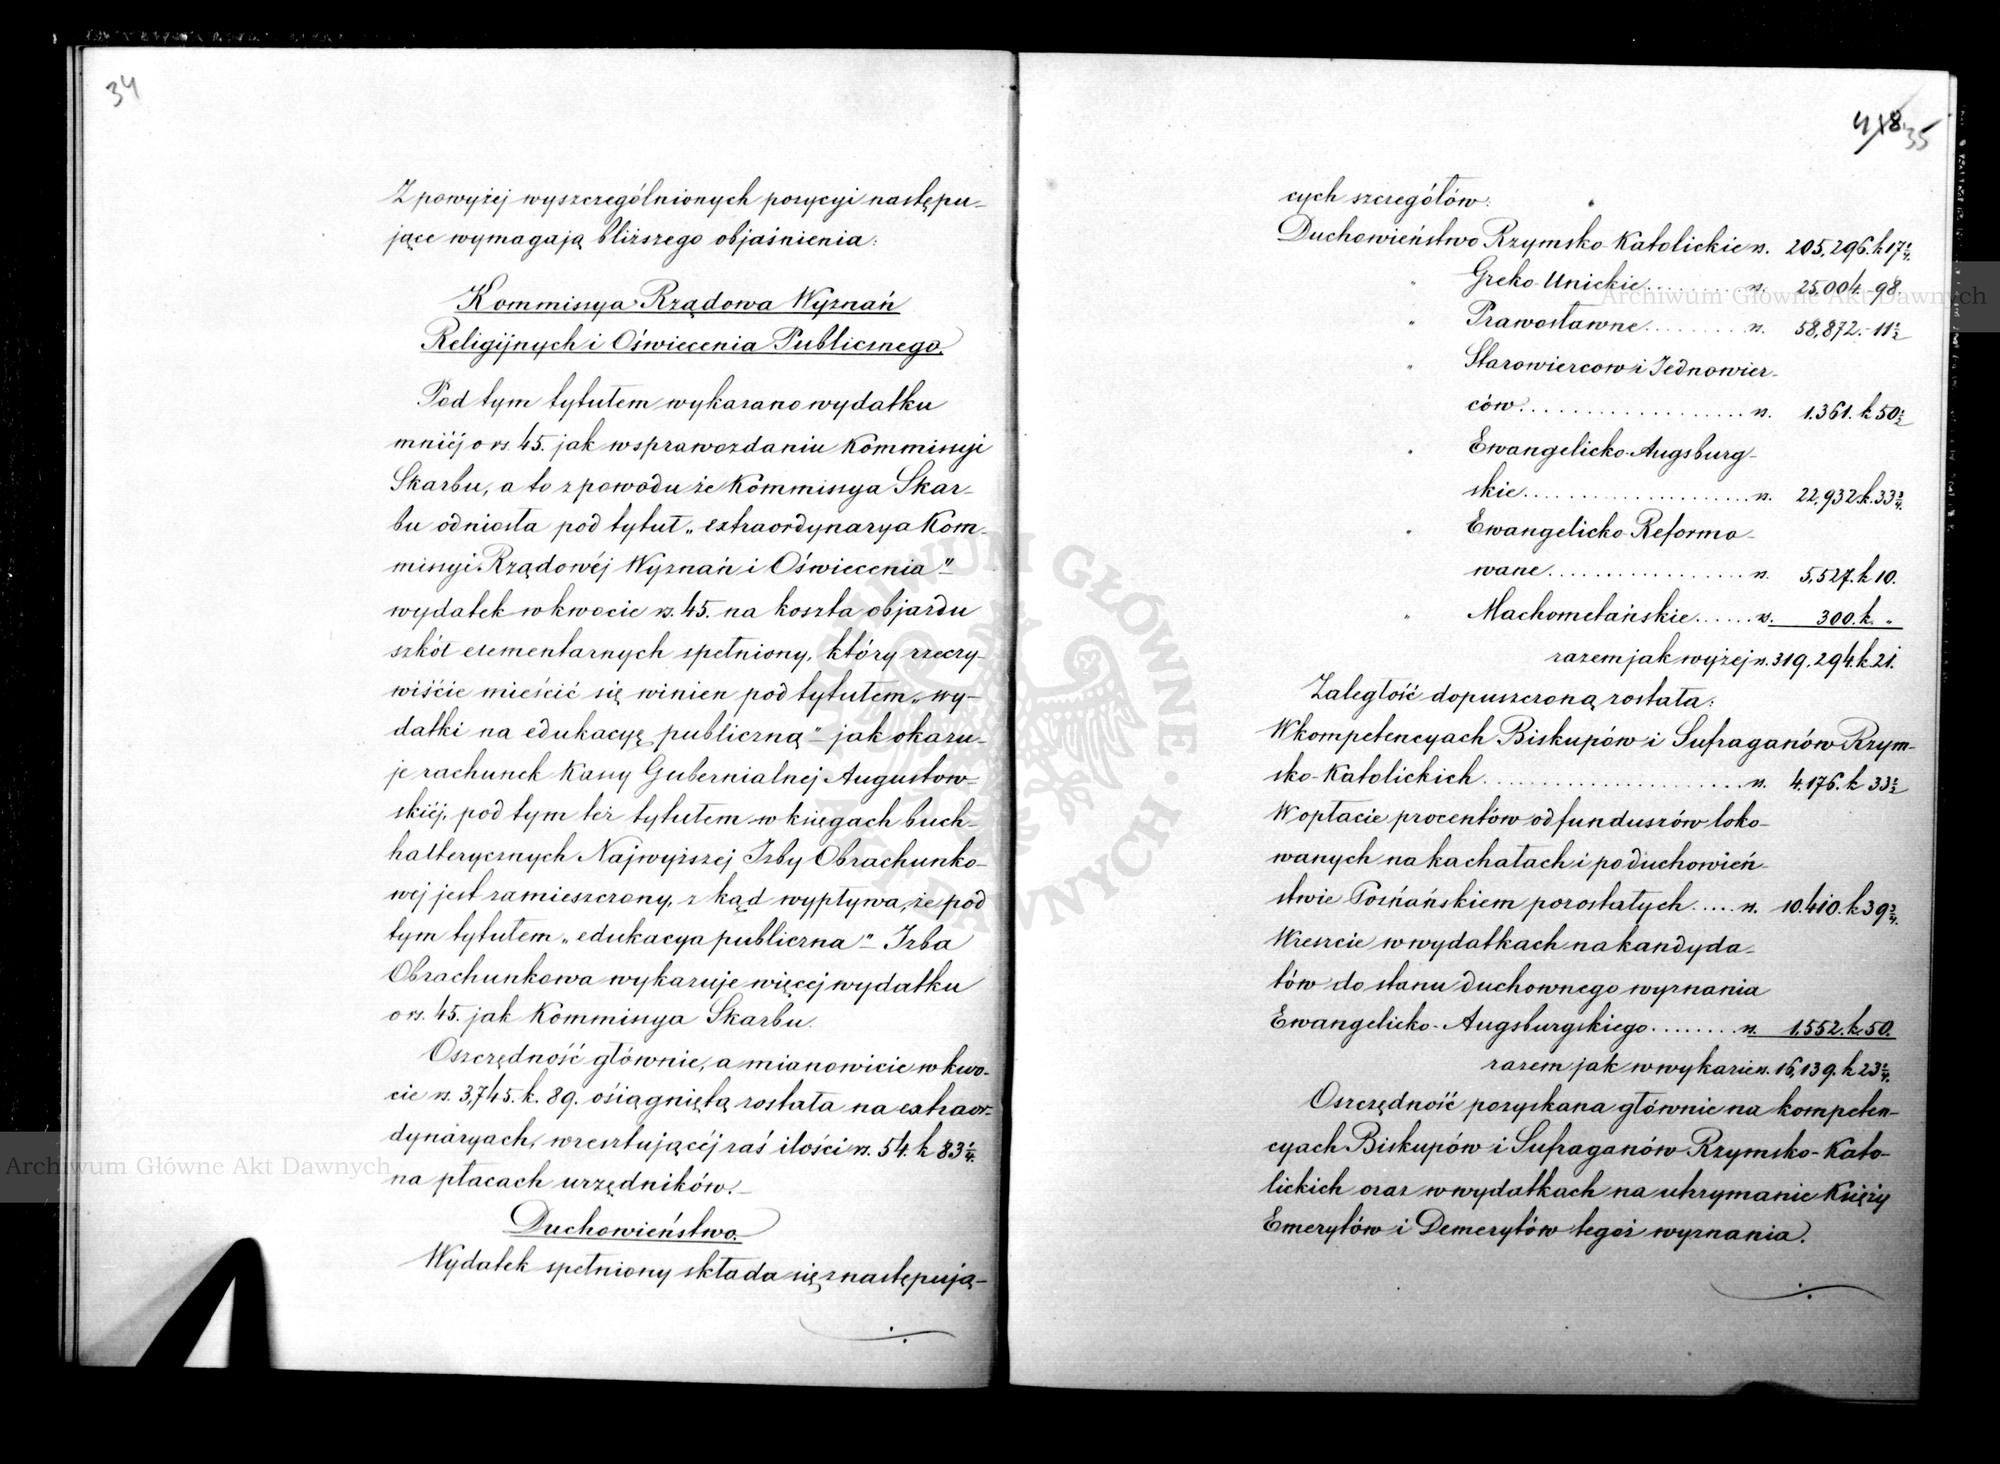 34
Z powyżej wyszczególnionych pozycyi następu-
jące wymagają bliższego objaśnienia:
Kommissya Rządowa Wyznań
Religijnych i Oświecenia Publicznego.
Pod tym tytułem wykazano wydatku
mniéj o rs. 45. jak w sprawozdaniu Kommissyi
Skarbu, a to z powodu że Kommissya Skar-
bu odniosła pod tytuł „extraordynarya Kom-
missyi Rządowéj Wyznań i Oświecenia"
wydatek w kwocie rs. 45. na koszta objazdu
szkół elementarnych spełniony, który rzeczy-
wiście mieścić się winien pod tytułem „wy-
datki na edukacyę publiczną" jak okazu-
je rachunek Kassy Gubernialnej Augustow-
skiéj, pod tym też tytułem w księgach buch-
halterycznych Najwyższej Izby Obrachunko-
wej jest zamieszczony, z kąd wypływa, że pod
tym tytułem „edukacya publiczna" Izba
Obrachunkowa wykazuje więcej wydatku
o rs. 45. jak Kommissya Skarbu.
Oszczędność głównie, a mianowicie w kwo-
cie rs. 3,745. k. 89. osiągniętą została na extraor-
dynaryach, w resztującéj zaś ilości rs. 54. k 83 1/4.
na płacach urzędników.-
Duchowieństwo.
Wydatek spełniony składa się z następują-
418 35
cych szczegółów:
Duchowieństwo Rzymsko Katolickie rs. 205,296. k 17 1/4.
" Greko-Unickie......... rs. 25,004.-98.
" Prawosławne......... rs. 58,872.-11 1/2
" Starowierców i Jednowier-
ców.................... rs. 1,361. k 50 1/2
" Ewangelicko-Augsburg-
skie.................... rs. 22,932 k. 33 3/4.
" Ewangelicko-Reformo-
wane................... rs. 5,527. k 10.
" Machometańskie...... rs. 300. k. "
razem jak wyżej rs. 319,294. k. 21.
Zaległość dopuszczoną została:
W kompetencyach Biskupów i Sufraganów Rzym-
sko-Katolickich....................... rs. 4,176. k 33 1/2
W opłacie procentów od funduszów loko-
wanych na kachałach i po duchowień-
stwie Poznańskiem pozostałych..... rs. 10,410. k 39 3/4.
Wreszcie w wydatkach na kandyda-
tów do stanu duchownego wyznania
Ewangelicko-Augsburgskiego........ rs. 1,552. k. 50.
razem jak w wykazie rs. 16,139. k 23 1/4.
Oszczędność pozyskana głównie na kompeten-
cyach Biskupów i Sufraganów Rzymsko-Kato-
lickich oraz w wydatkach na utrzymanie Księży
Emerytów i Demerytów tegoż wyznania.
Archiwum Główne Akt Dawnych
Archiwum Główne Akt Dawnych
ARCHIWUM GŁÓWNE AKT DAWNYCH